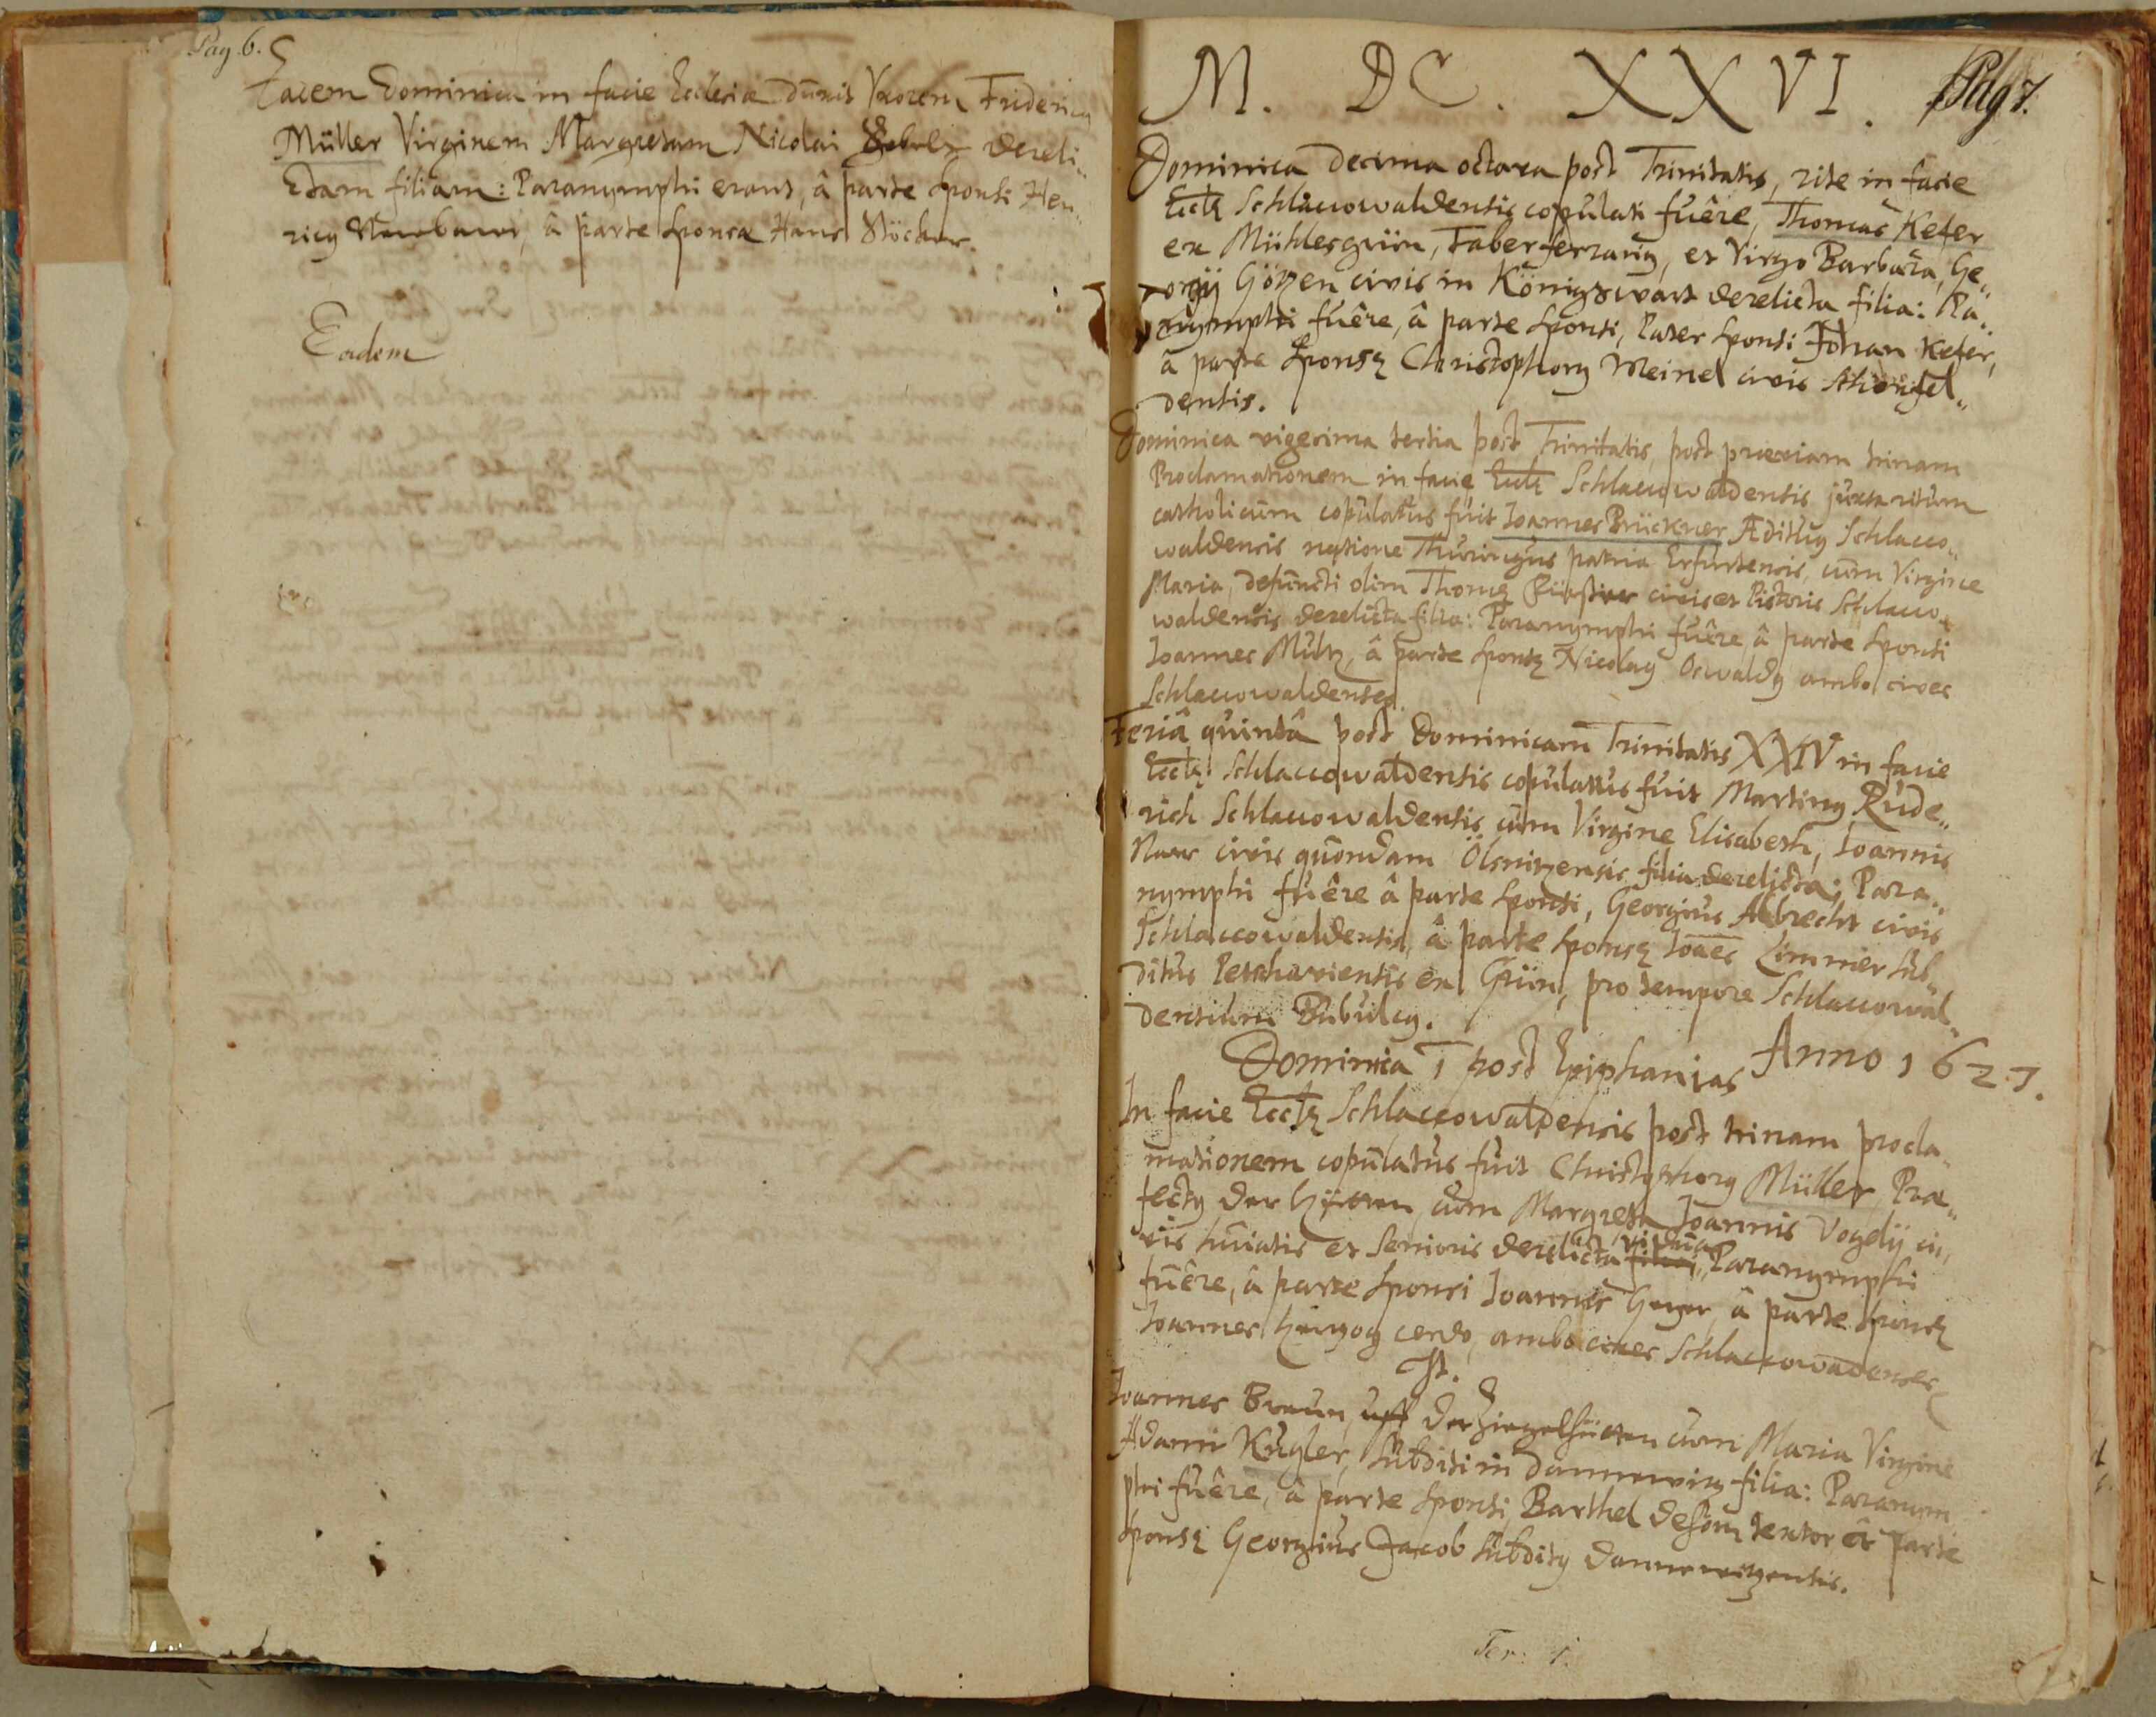 Pag. 6.
Eadem Dominica in facie Ecclesiæ duxit Vxorem Fridericꝰ
Müller Virginem Margretam Nicolai dereli„
ctam filiam: Paranymphi erant, â parte Sponsi Hen„
ricꝰ Newbawer, â parte Sponsæ Hans Stöcher.
Eadem
M. DC. XXVI.
Pag 7.
Dominica decima octava post Trinitatis, rite in facie
Eccłę Schlaccowaldensis copulati fuêre, Thomas Kefer
ex Mühlesgrün, Faber ferrariꝰ, et Virgo Barbara, Ge„
orgij Götzen civis in Königswart derelicta filia: Pa„
nymphi fuêre, â parte Sponsi, Pater Sponsi Johan Kefer,
â parte Sponsę Christophorꝰ Meinel civis Schönfel„
densis.
Dominica vigesima tertia post Trinitatis, post præviam trinam
Proclamationem in facie Eccłę Schlaccowaldensis juxta ritum
catholicum copulatus fuit Joannes Brückner Ædituꝰ Schlacco„
waldensis natione Thuringus patria Erfurtensis, cum Virgine
Maria, defuncti olim Thomę civis et Pistoris Schlacco„
waldensis derelicta filia: Paranymphi fuêre â parte Sponsi
Joannes Mültz, â parte Sponsę Nicolaꝰ Oswaldꝰ ambo cives
Schlaccowaldenses.
Feriâ quintâ post Dominicam Trinitatis XXIV in facie
Eccłę Schlaccowaldensis copulattus fuit Martinꝰ Rude„
rich Schlaccowaldensis cum Virgine Elisabeth, Joannis
Naer civis quondam Ölsnitzensis filia derelicta; Para„
nymphi fuêre â parte Sponsi, Georgius Albrecht civis
Schlaccowaldensis, â parte Sponsę Joães Zimmer Sub„
ditus Petschaviensis ex Grün, pro tempore Schlaccowal„
densium Bubulcꝰ.
Dominica 1 post Epiphanias Anno 1627.
In facie Eccłę Schlaccowaldensis post trinam procla„
mationem copulatus fuit Christophorꝰ Müller, Præ„
fectꝰ der Hütten, cum Margreta Joannis Vogelij ci„
vis huiatis et Senioris derelicta filia vidua, Paranymphi
fuêre, â parte Sponsi Joannes Geyer, â parte Sponsę
Joannes Hertzog cerdo, ambo cives Schlaccowaldenses
It.
Joannes Braun, uff der Ziegelhütten cum Maria Virgine
Adami Kugler, Subditi in Dannewitz filia: Paranym
phi fuêre, â parte Sponsi, Barthel textor, â parte
Sponsę Georgius Jacob Subditꝰ Dannewitzensis.
Fer: 1.